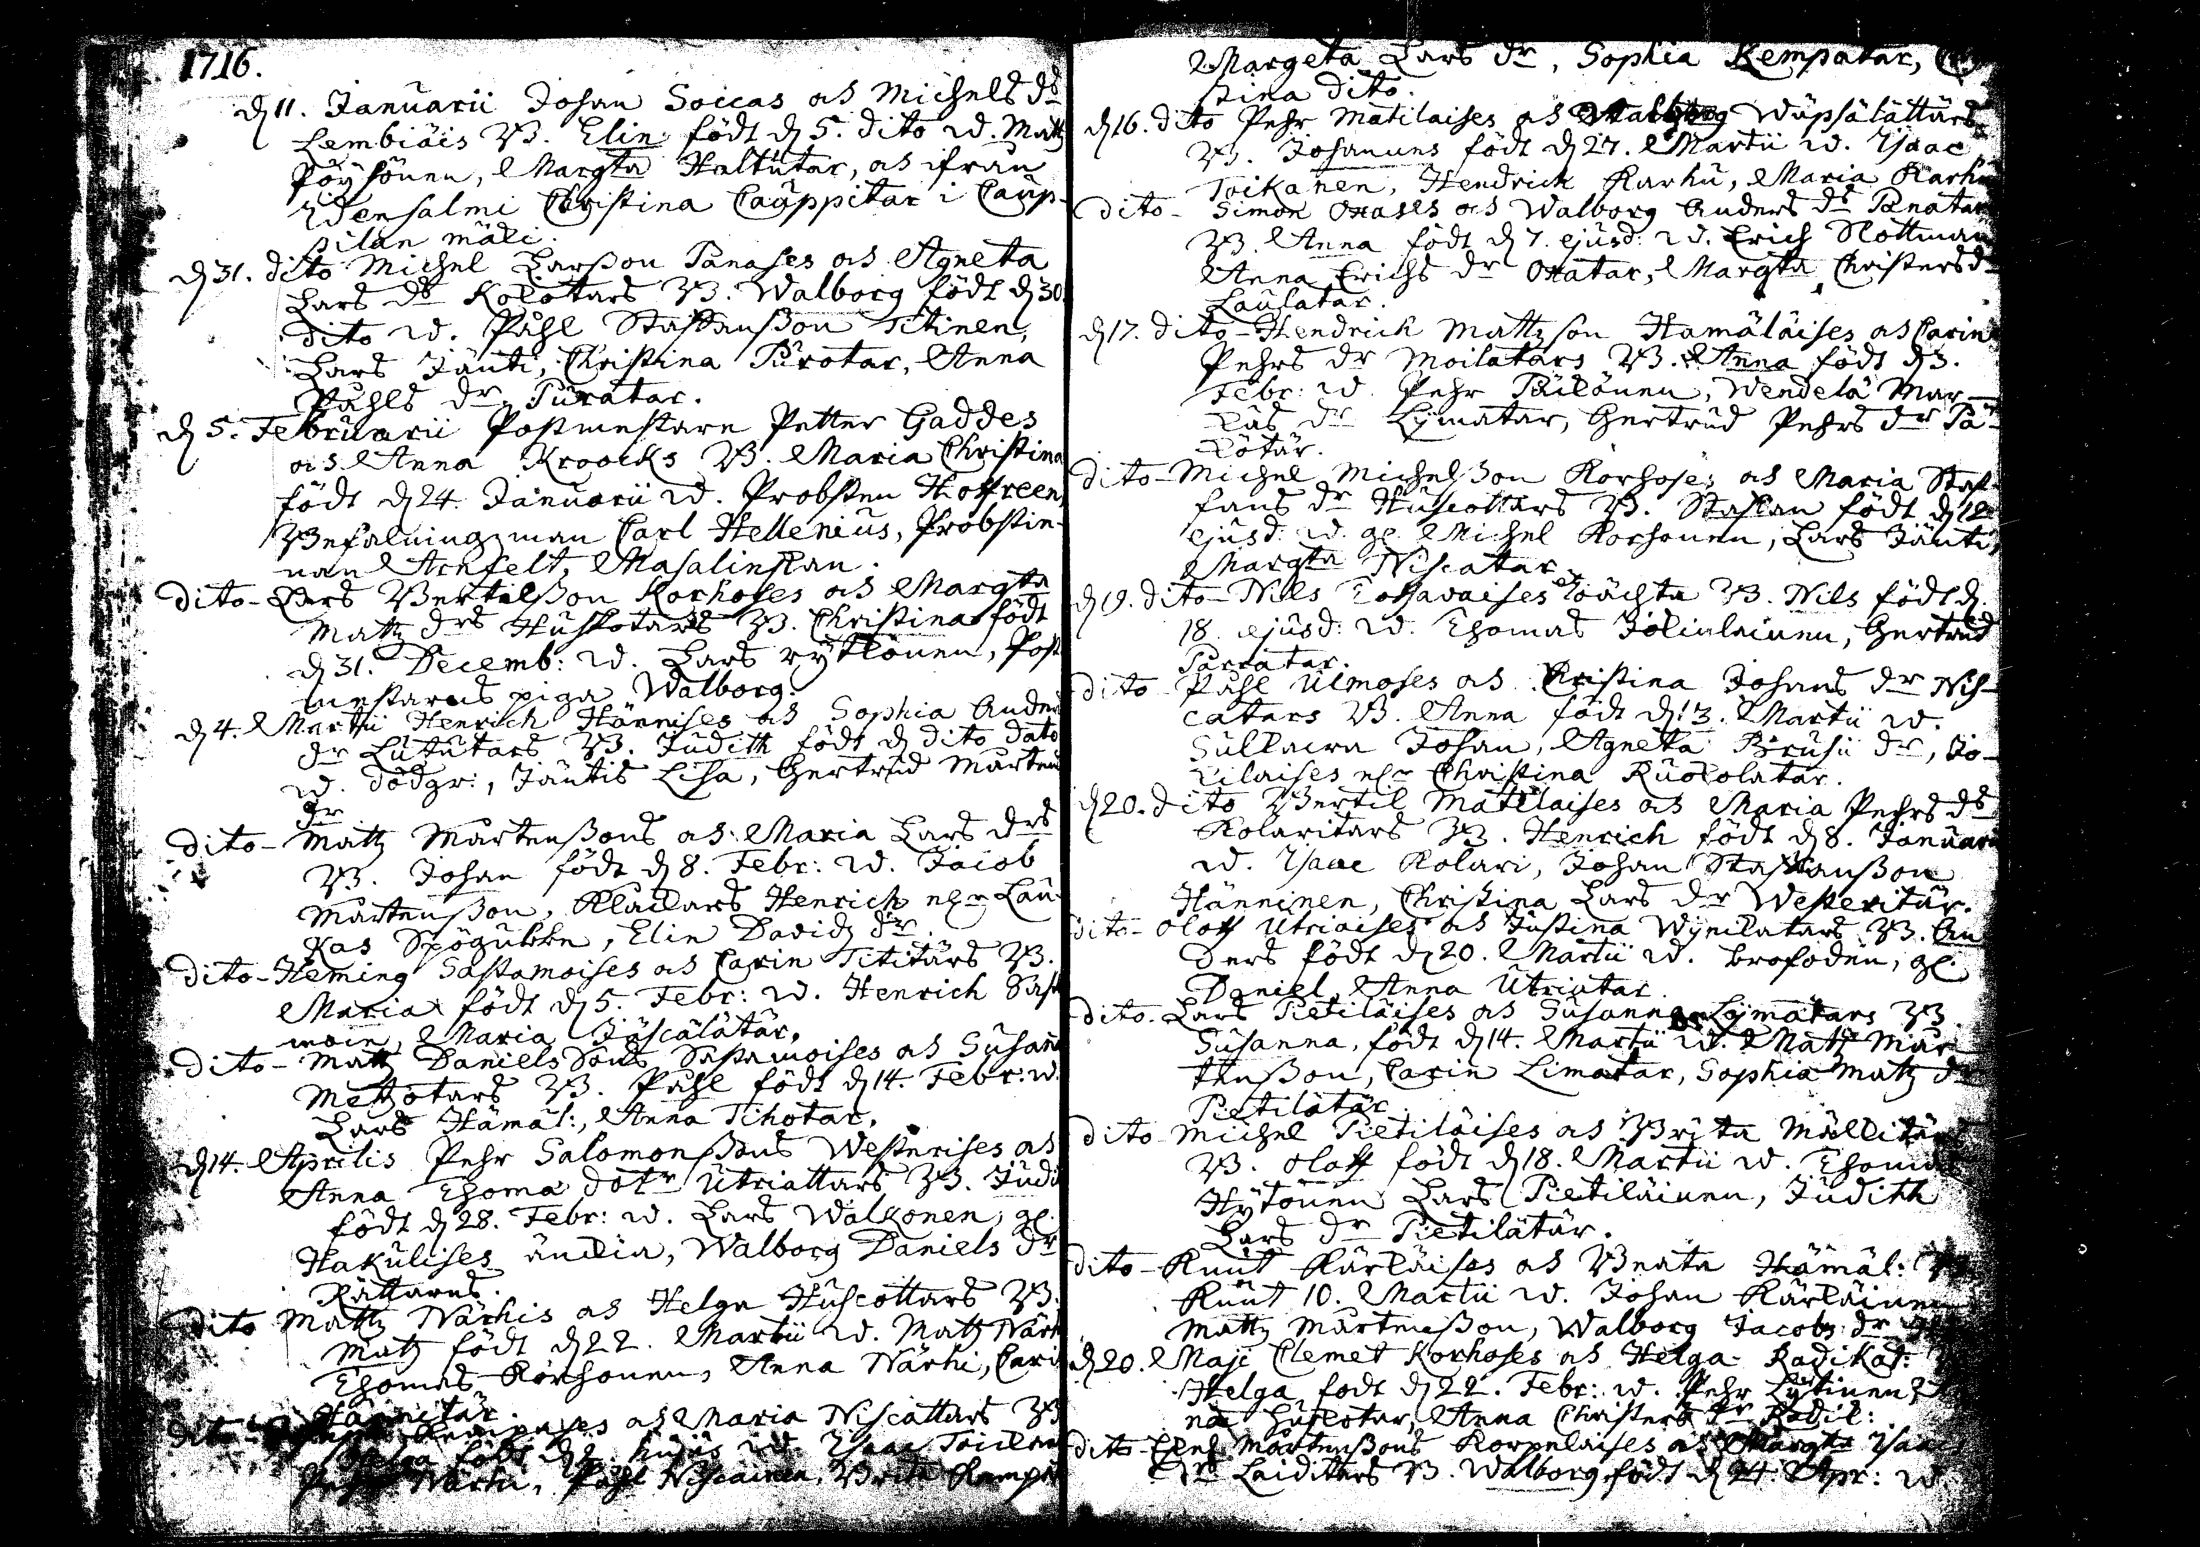 1716.
d. 11. Januarii Johan Soicas os Michels dr
Lembiäis B. Elin född d. 5. dito w. Matz
Pöyhönen, Margta Haltutar, os ifrån
Idensalmi Christina Cauppitar i Caup-
pilan mäki.
d. 31. dito Michel Larßon Panases os Agneta
Lars dr Kolotars B. Walborg född d. 30.
dito w. Påhl Staffanßon Titinen,
Lars Jänti, Christina Purotar, Anna
Påhls dr Puratar.
d. 5. Februarii Postmestaren Petter Gaddes
os Anna Kroocks B. Maria Christina
född d. 24. Januarii w. Probsten Hoffreen,
Befalningzman Carl Hellenius, Probstin-
nan Arnfelt, Masalinskan.
dito - Lars Bertelßon Korhoses os Margta
Matz drs Huskotars B. Christina född
d. 31. Decemb: w. Lars rytkönen, Post
mestarens piga Walborg.
d. 4. Martii Henrich Hännises os Sophia Anders
dr Lututars B. Judith född d. dito dato
w. dödgr:, Jäntis Lisa, Gertrud Mårtens
dr
dito - Matz Mårtenßons os Maria Lars drs
B. Johan född d. 8. Febr: w. Jacob
Mårtenßon, Klackars Henrich
Kas , Elin Davidz dr.
dito - Heming Sastamoises os Carin Tititärs B.
Maria född d. 5. Febr: w. Henrich Sast
moin, Maria Jäscälätär.
dito - Matz Daniels Sons Sastamoises os Susan
Metzotars B. Påhl född d. 14. Febr: w.
Lars Hämäl:, Anna Tihotar.
d. 14. Aprilis Pehr Salomonßons Westerises os
Anna Thoma dotr Utriattars B. Judi
född d. 28. Febr: w. Lars Walkonen, gl.
Hakulises , Walborg Daniels dr
Råttares.
dito Mattz Närhis os Helga Huscottars B.
Matz född d. 22. Martii w. Matz Närh
Thomas Korhonen, Anna Närhi, Carin
Hannitär.
dito - Kempases os Maria Niscattars B
Helga född d. 2. hujus w. Isaac Toicka
Pehr Närhi, Påhl Niscainen, Brita Kempa
Margeta Lars dr, Sophia Kempatar,
stina dito.
d. 16. dito Pehr Matilaises os Walborg Wäpsälättärs
B. Johannes född d. 27. Martii w. Isaac
Toikanen, Hendrich Karhu, Maria Karhu
dito - Simon Oxases os Walborg Anders dr Panatar
B. Anna född d. 7. ejusd: w. Erich Slottman
Anna Erichs dr Oxatar, Margta Christers dr
Laulatar.
d. 17. dito - Hendrich Mattzson Hamäläises os Carin
Pehrs dr Moilatars B. Anna född d. 3.
Febr: w. Pehr Päilönen, Wendela Mar-
kus dr Lymatar, Gertrud Pehrs dr Pä-
lötär.
dito - Michel Michelßon Korhoses os Maria Staf-
fans dr Huscottars B. Staffan född d. 12
ejusd: w. gl. Michel Korhonen, Lars Jänti,
Margta Niscatar.
d. 19. dito - Nils os B. Nils född d.
18. ejusd: w. Thomas , Gertrud
Parratar.
dito - Påhl Ulmoses os Christina Johans dr Nis-
catars B. Anna född d. 13. Martii w.
Johan, Agneta dr, Jo-
kilaises Christina Ruokolatar.
d. 20. dito Bertil Matilaises os Maria Pehrs dr
Kolaritars B. Henrich född d. 8. Januari
w. Isaac Kolari, Johan Staffanßon
Hänninen, Christina Lars dr Westeritär.
dito - Oloff Utriaises os Justina Wynilatars B. An
ders född d. 20. Martii w. , gl.
Daniel, Anna Utriatar.
dito - Lars Pietiläises os Susanna Lymatars B
Susanna, född d. 14. Martii w. Matz Mår
tenßon, Carin Limatar, Sophia Matz dr
Pietilätär.
dito Michel Pietiläises os Brita Mällitärs
B. Oloff född d. 18. Martii w. Thomas
Hytönen, Lars Pietiläinen, Judith
Lars dr Pietilätär.
dito - Knut Kärläises os Beata Hämäl:
Knut 10. Martii w. Johan Kärläinen
Mattz Mårtenßon, Walborg Jacobs dr
d. 20. Maji Clemet Korhoses os Helga Radikat:
Helga född d. 22. Febr: w. Pehr Lytinen,
na Huskotar, Anna Christers dr Radik:
dito - Mårtenßons Korpelaises os Margta Isaac
dr Laiditars B. Walborg född d. 24. Apr: w.